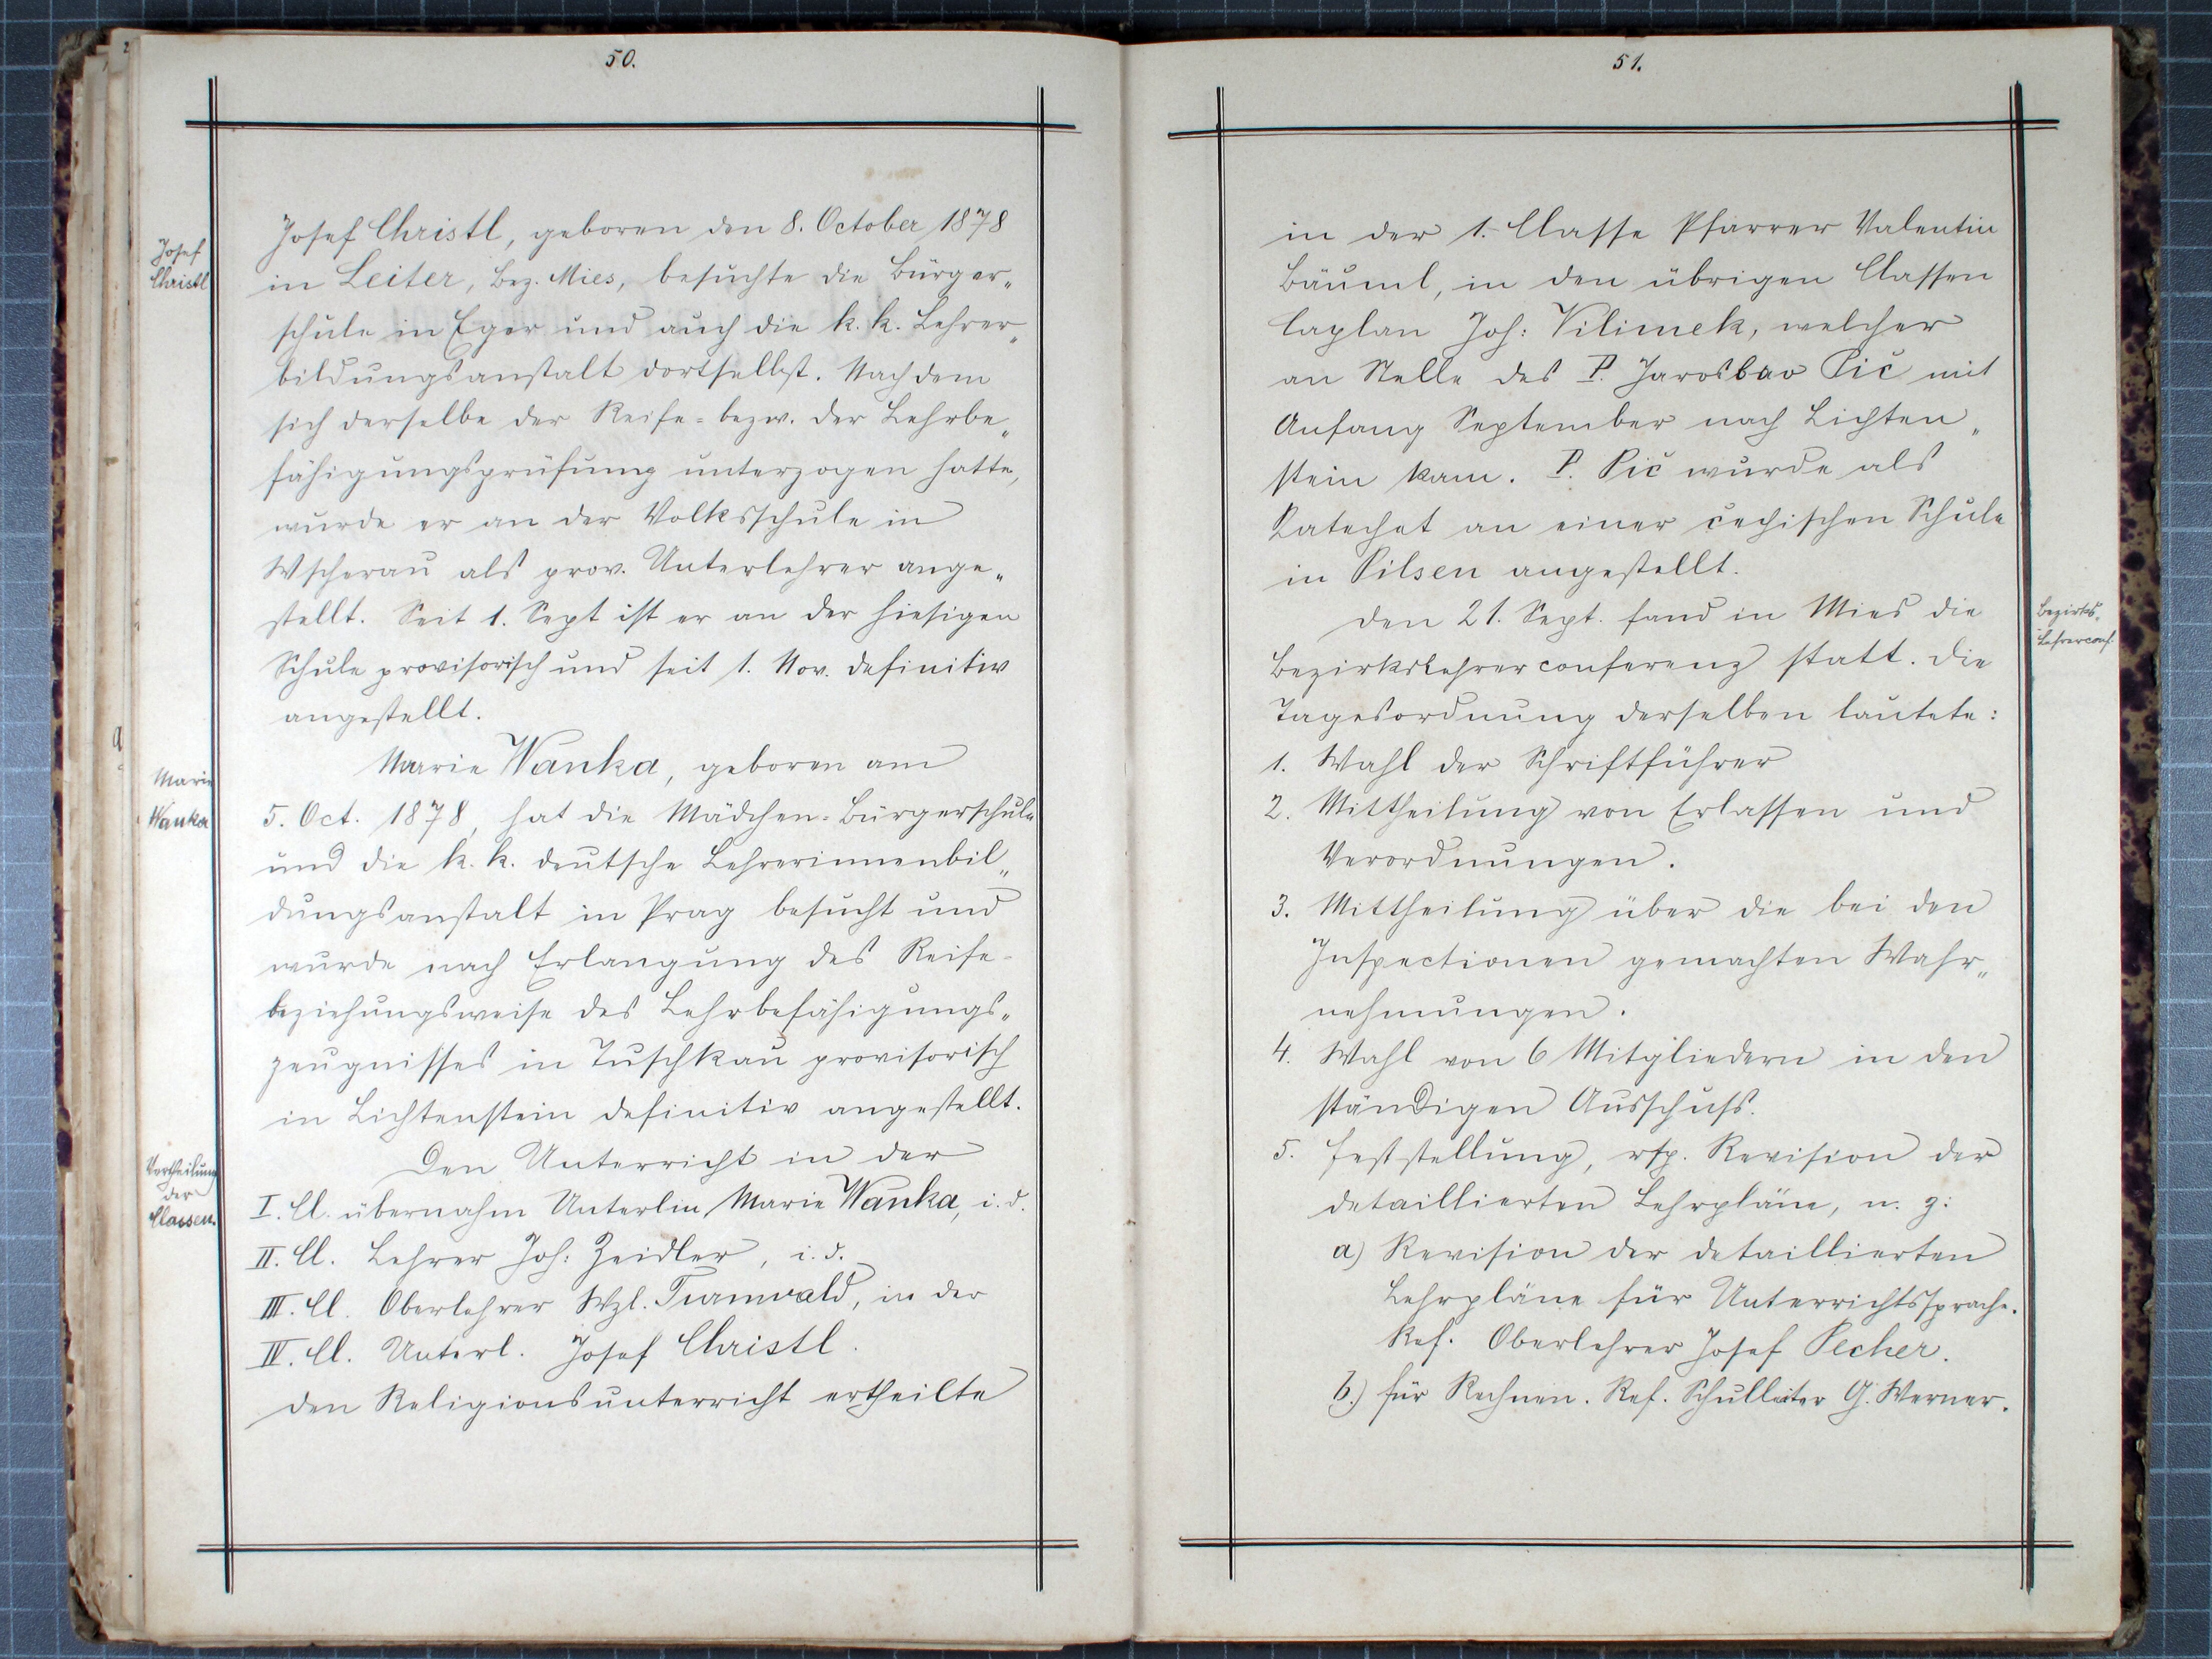 50.
Josef
Christl
Josef Christl, geboren den 8. October 1878
in Leiter, Bez. Mies, besuchte die Bürger„
schule in Eger und auch die k. k. Lehrer„
bildungsanstalt dortselbst. Nachdem
sich derselbe der Reife- bezw. der Lehrbe„
fähigungsprüfung unterzogen hatte,
wurde er an der Volksschule in
Wscherau als prov. Unterlehrer ange„
stellt. Seit 1. Sept ist er an der hiesigen
Schule provisorisch und seit 1. Nov. definitiv
angestellt.
Marie
Wanka
Marie Wanka, geboren am
5. Oct. 1878, hat die Mädchen-Bürgerschule
und die k. k. deutsche Lehrerinnenbil„
dungsanstalt in Prag besucht und
wurde nach Erlangung des Reife-
beziehungsweise des Lehrbefähigungs„
zeugnisses in Tuschkau provisorisch
in Lichtenstein definitiv angestellt.
Vertheilung
der
Classen.
Den Unterricht in der
I. Cl. übernahm Unterlin Marie Wanka, i. d.
II. Cl. Lehrer Joh: Zeidler, i. d.
III. Cl. Oberlehrer Wzl. Turnwald, in der
IV. Cl. Unterl. Josef Christl.
den Religionsunterricht ertheilte
51.
in der 1. Classe Pfarrer Valentin
Bäuml, in den übrigen Classen
Caplan Joh: Vilimek, welcher
an Stelle des P. Jaroslav Pič mit
Anfang September nach Lichten„
stein kam. P. Pič wurde als
Katechet an einer čechischen Schule
in Pilsen angestellt.
Bezirks„
Lehrerconf.
Den 21. Sept. fand in Mies die
Bezirkslehrerconferenz statt. Die
Tagesordnung derselben lautete:
1. Wahl der Schriftführer
2. Mittheilung von Erlassen und
Verordnungen.
3. Mittheilung über die bei den
Inspectionen gemachten Wahr„
nehmungen.
4. Wahl von 6 Mitgliedern in den
ständigen Ausschuss.
5. Feststellung, rsp. Revision der
detaillierten Lehrpläne, u. z:
a) Revision der detaillierten
Lehrpläne für Unterrichtssprache.
Ref. Oberlehrer Josef Pecher.
b.) für Rechnen. Ref. Schulleiter G. Werner.